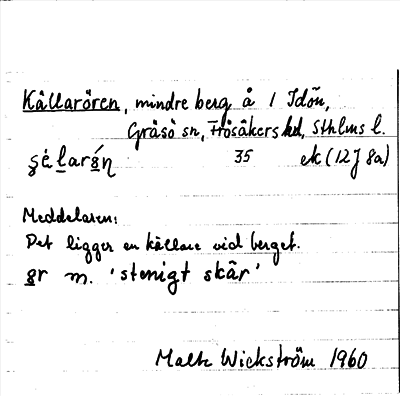 Källarören, mindre berg å / Idön,
Gräsö sn, Frösåkers hd, Sthlms l.
35 ek (12J 8a)
Meddelaren:
Det ligger en källare vid berget.
m. 'stenigt skär'
Malte Wickström 1960